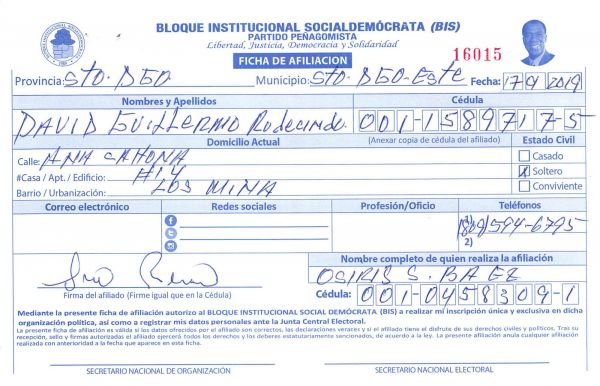 BLOQUE INSTITUCIONAL SOCIALDEMÓCRATA (BIS)
PARTIDO PEÑAGOMISTA
Libertad, Justicia, Democracia y Solidaridad
FICHA DE AFILIACIÓN
16015
Provincia: Sto. DGO Municipio: Sto. DGO-Este Fecha: 17-9 2019
Nombres y Apellidos Cédula
DAVID GUILLERMO Rodecindo. 001-1589717-5
Domicilio Actual (Anexar copia de cédula del afiliado) Estado Civil
Calle: ANA CAHONA Casado
#Casa / Apt. / Edificio: #14 X Soltero
Barrio / Urbanización: LOS MINA Conviviente
Correo electrónico Redes sociales Profesión/Oficio Teléfonos
1) (809) 594-6795
2)
Nombre completo de quien realiza la afiliación
OSIRIS S. BAEZ
Firma del afiliado (Firme igual que en la Cédula) Cédula: 001-0458309-1
Mediante la presente ficha de afiliación autorizo al BLOQUE INSTITUCIONAL SOCIAL DEMÓCRATA (BIS) a realizar mi inscripción única y exclusiva en dicha
organización política, así como a registrar mis datos personales ante la Junta Central Electoral.
La presente ficha de afiliación es válida si los datos ofrecidos por el afiliado son correctos, las declaraciones veraces y si el afiliado tiene el disfrute de sus derechos civiles y políticos. Tras su
recepción, sello y firmas autorizadas el afiliado ejercerá todos los derechos y los deberes estatutariamente sancionados, de acuerdo a la ley. La presente afiliación anula cualquier afiliación
realizada con anterioridad a la fecha que aparece en esta ficha.
SECRETARIO NACIONAL DE ORGANIZACIÓN SECRETARIO NACIONAL ELECTORAL